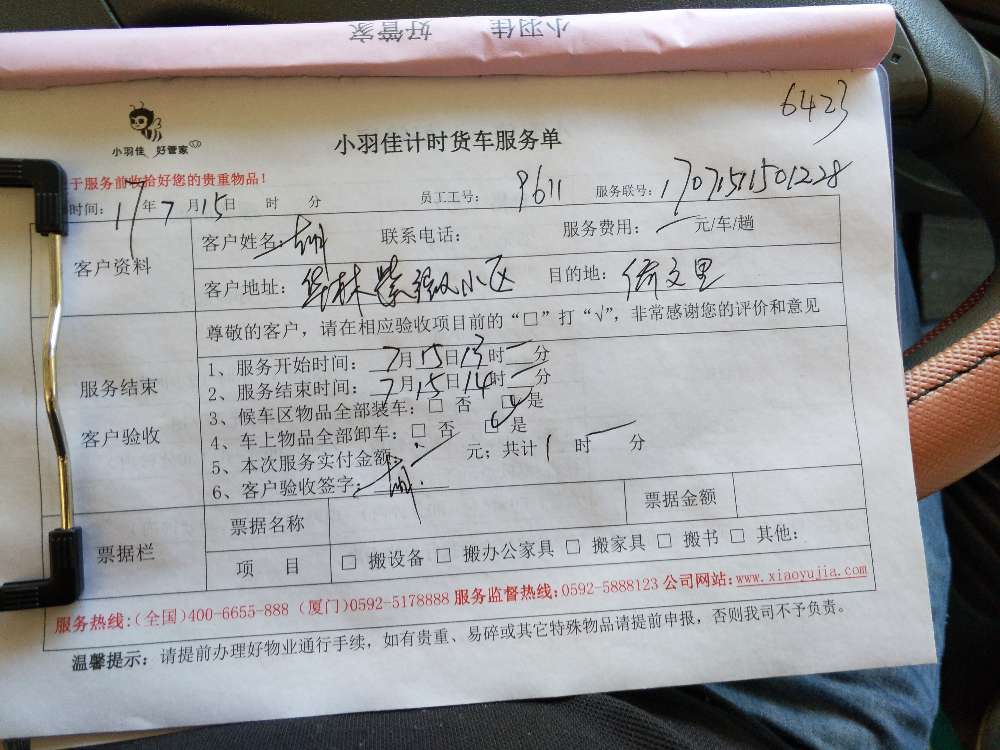 小羽佳 好管家
6423
小羽佳 好管家
小羽佳计时货车服务单
于服务前收拾好您的贵重物品！
时间：17年7月15日 时 分 员工工号：9611 服务联号：17071511501228
客户资料
客户姓名： 联系电话： 服务费用：一元/车/趟
客户地址：华林紫 小区 目的地：侨文里
尊敬的客户，请在相应验收项目前的“□”打“√”，非常感谢您的评价和意见
服务结束
客户验收
1、服务开始时间：7月15日13时一分
2、服务结束时间：7月15日14时一分
3、候车区物品全部装车：□ 否 ☑ 是
4、车上物品全部卸车：□ 否 ☑ 是
5、本次服务实付金额： 元；共计1时一分
6、客户验收签字：
票据栏
票据名称 票据金额
项 目 □ 搬设备 □ 搬办公家具 □ 搬家具 □ 搬书 □ 其他：
服务热线：（全国）400-6655-888（厦门）0592-5178888 服务监督热线：0592-5888123 公司网站：www.xiaoyujia.com
温馨提示：请提前办理好物业通行手续，如有贵重、易碎或其它特殊物品请提前申报，否则我司不予负责。